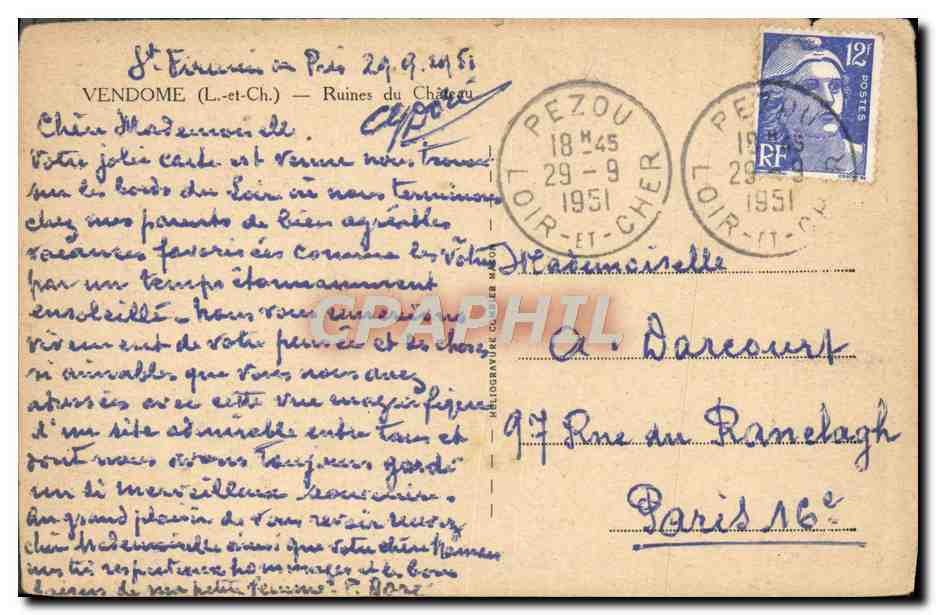 St Firmin des Prés 29.9.1951
VENDOME (L.-et-Ch.) — Ruines du Château
Chère Mademoiselle.
Votre jolie carte est venue nous trouver
sur les bords du Loir où nous terminons
chez mes parents de bien agréables
vacances favorisées comme les vôtres
par un temps étonnamment
ensoleillé. Nous vous remercions
vivement de votre pensée et des choses
si aimables que vous nous avez
adressées avec cette vue magnifique
d'un site admirable entre tous et
dont nous avons toujours gardé
un si merveilleux souvenir.
Au grand plaisir de vous revoir recevez
chère Mademoiselle ainsi que votre chère Maman
mes très respectueux hommages et les bons
baisers de ma petite femme. P. Doré
HELIOGRAVURE COMBIER MACON
CPAPHIL
PEZOU
18 H 45
29 - 9
1951
LOIR-ET-CHER
PEZOU
18 H 45
29 - 9
1951
LOIR-ET-CHER
12F
POSTES
RF
Mademoiselle
A. Darcourt
97 Rue du Ranelagh
Paris 16e